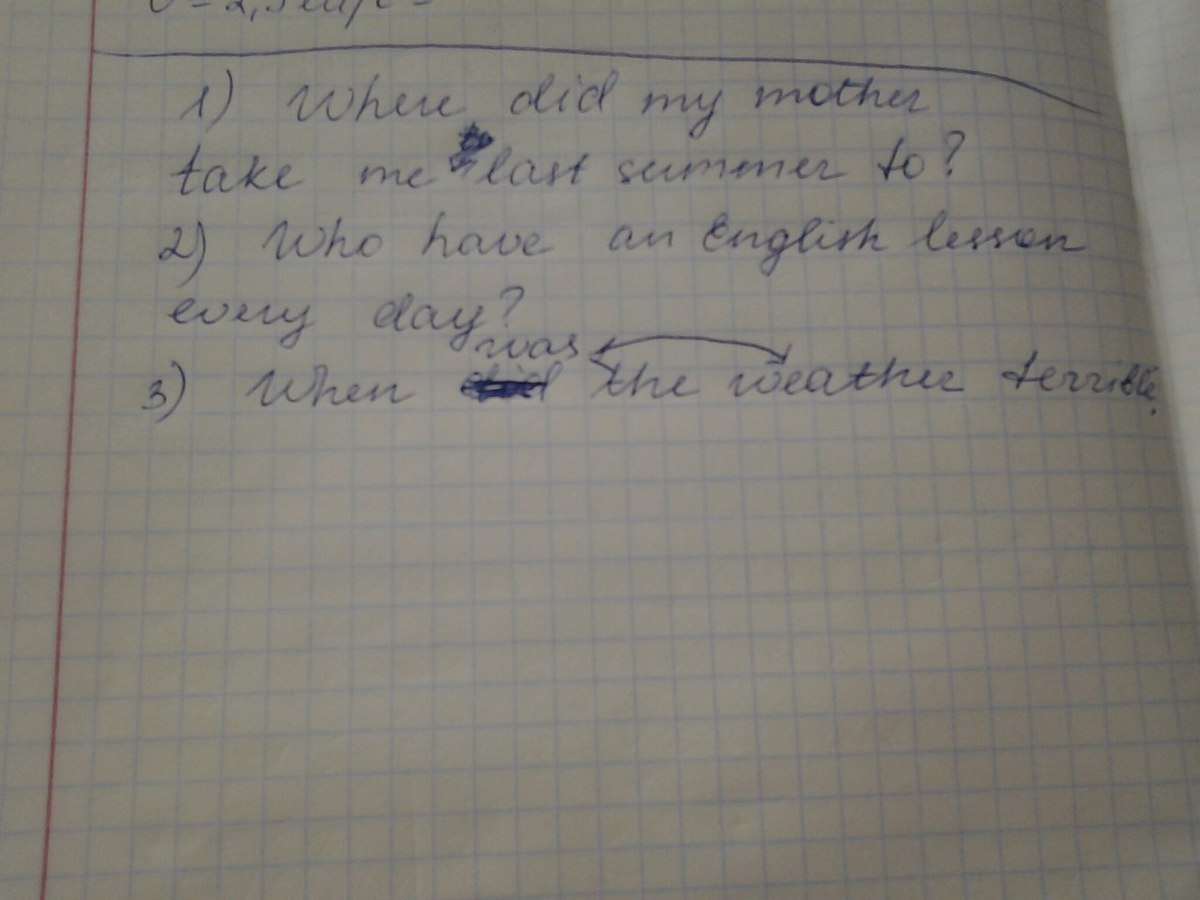 1) Where did my mother
take me last summer to?
2) Who have an English lesson
every day?
was
3) When did the weather terrible